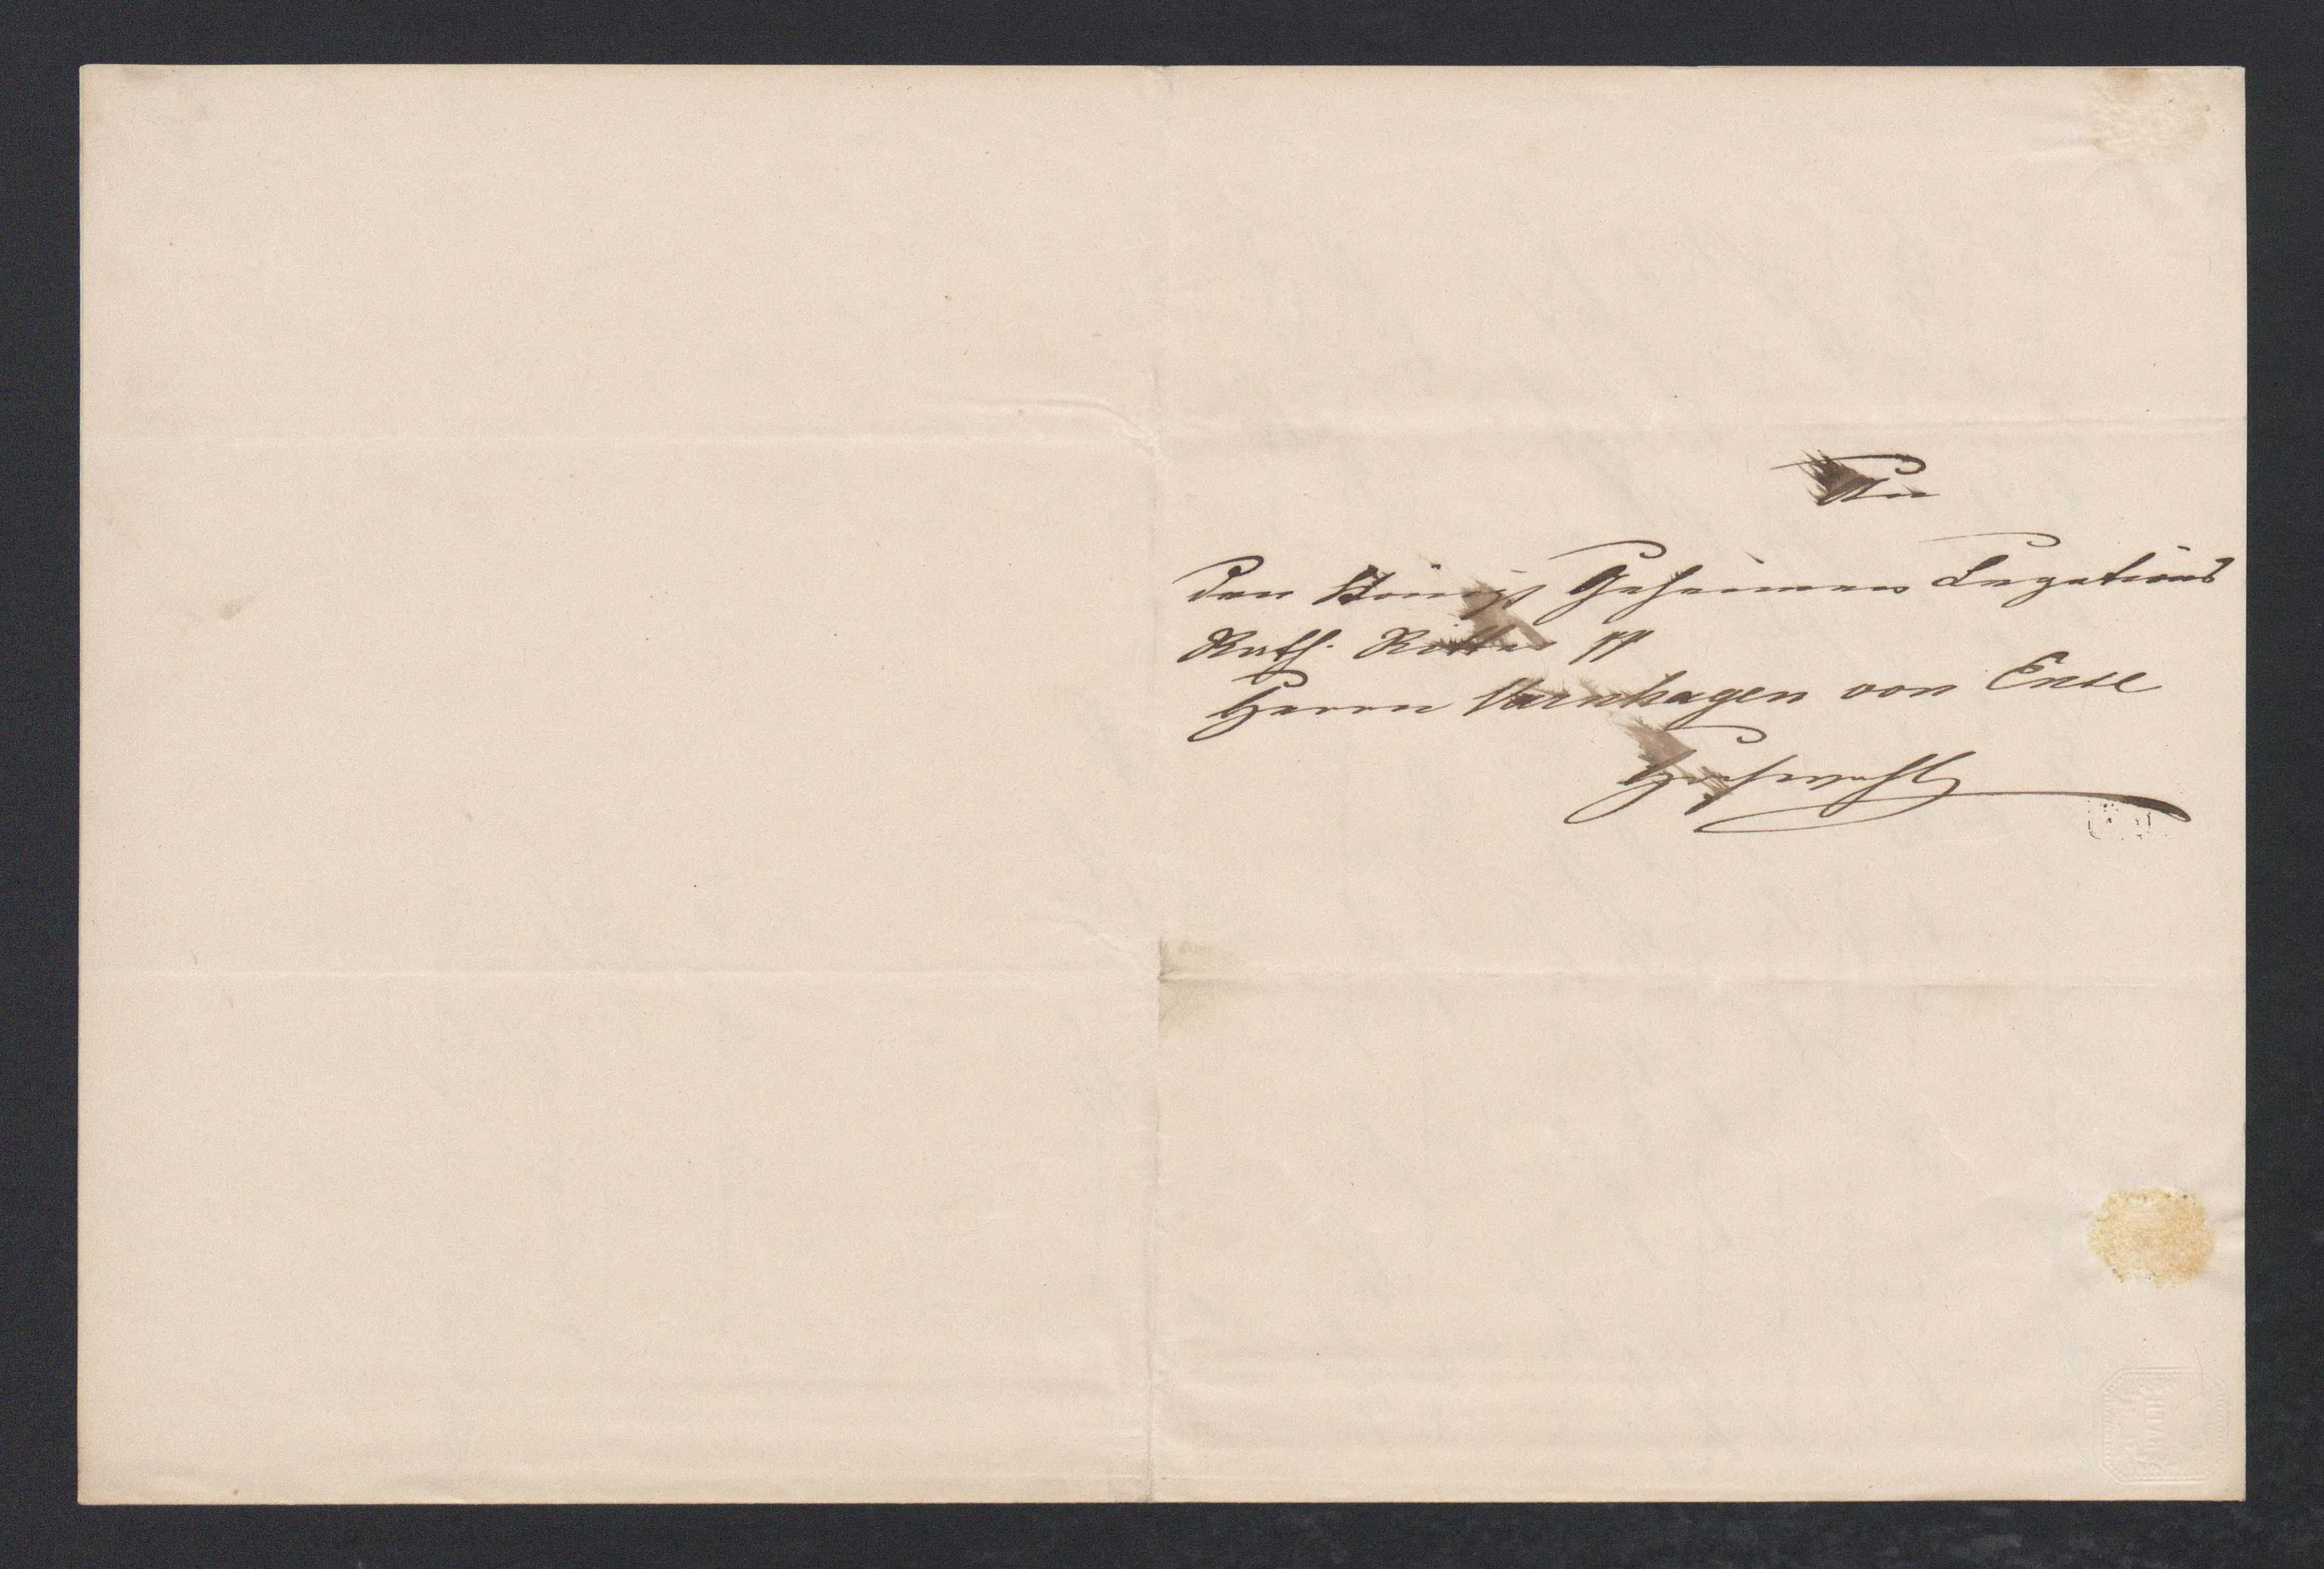 An
den Königl Geheimen Legations
Rath. Ritter pp
Herrn Varnhagen von Ense
Hochwohlg